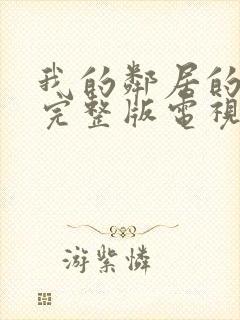 我的鄰居的
完整版電視
游紫憐